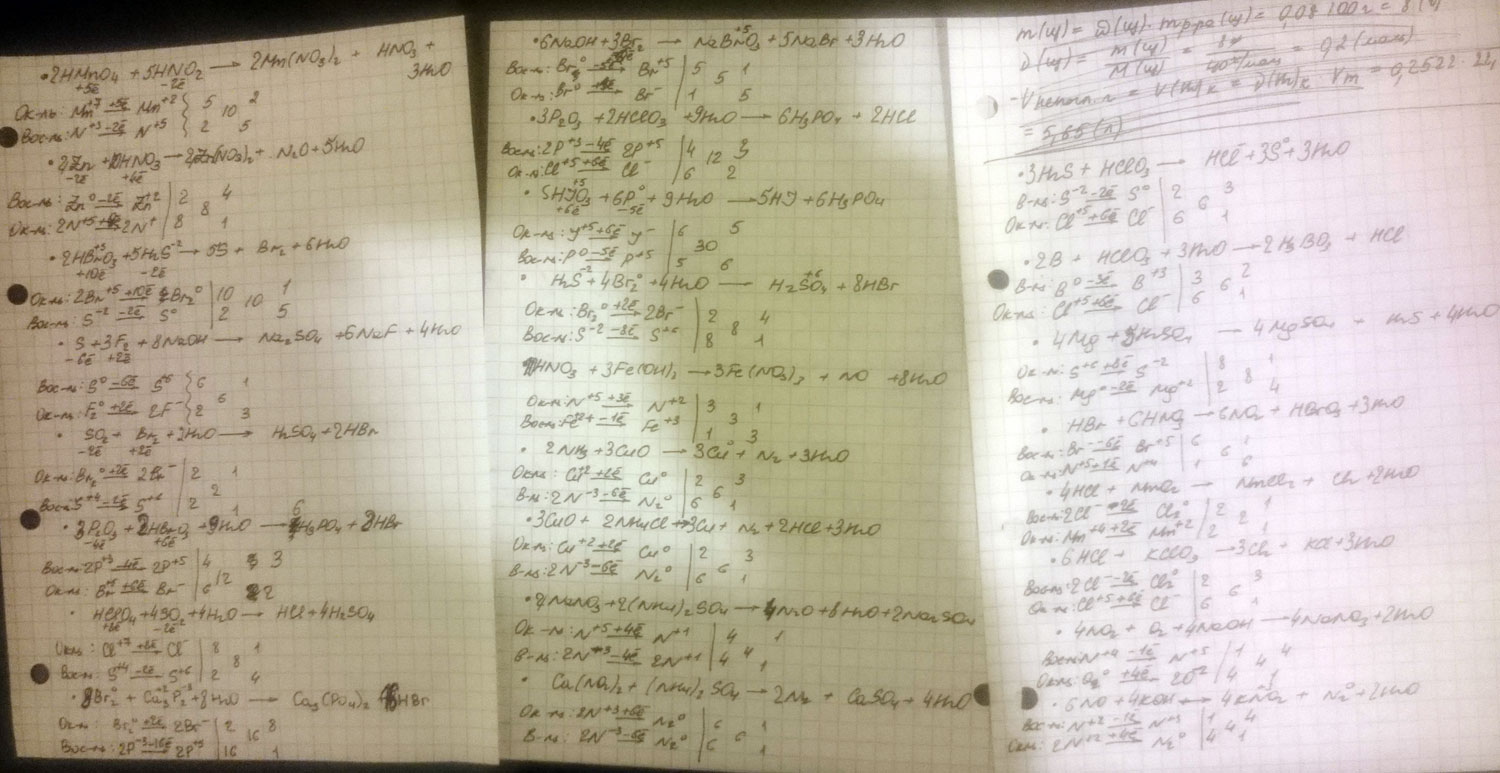 •2HMnO4 + 5HNO2 → 2Mn(NO3)2 + HNO3 +
3H2O
+5ē -2ē
Ок-ль: Mn+7 +5ē Mn+2 5 2
10
Вос-ль: N+3 -2ē N+5 2 5
Zn + 10HNO3 → Zn(NO3)2 + N2O + 5H2O
-2ē +4ē
Вос-ль: Zn0 -2ē Zn+2 2 4
8
Ок-ль: 2N+5 2N+ 8 1
•2HBrO3 + 5H2S-2 → 5S + Br2 + 6H2O
+10ē -2ē
Ок-ль: 2Br+5 +10ē Br20 10 1
10
Вос-ль: S-2 -2ē S0 2 5
• S + 3F2 + 8NaOH → Na2SO4 + 6NaF + 4H2O
-6ē +2ē
Вос-ль: S0 -6ē S+6 6 1
6
Ок-ль: F20 +2ē 2F- 2 3
• SO2 + Br2 + 2H2O → H2SO4 + 2HBr
-2ē +2ē
Ок-ль: Br20 +2ē 2Br- 2 1
2
Вос-ль: S+4 -2ē S+6 2 1
•3P2O3 + 2HBrO3 + 9H2O → 6H3PO4 + 2HBr
-4ē +6ē
Вос-ль: 2P+3 -4ē 2P+5 4 3
12
Ок-ль: Br+5 +6ē Br- 6 2
• HClO4 + 4SO2 + 4H2O → HCl + 4H2SO4
+8ē -2ē
Ок-ль: Cl+7 +8ē Cl- 8 1
8
Вос-ль: S+4 -2ē S+6 2 4
• 8Br20 + Ca3+2P2-3 + 8H2O → Ca3(PO4)2 + HBr
Ок-ль: Br20 +2ē 2Br- 2 8
16
Вос-ль: 2P-3 -16ē 2P+5 16 1
•6NaOH + 3Br2 → NaBrO3 + 5NaBr + 3H2O
Вос-ль: Br0 Br+5 5 1
5
Ок-ль: Br0 Br- 1 5
•3P2O3 + 2HClO3 + 9H2O → 6H3PO4 + 2HCl
Вос-ль: 2P+3 -4ē 2P+5 4 3
12
Ок-ль: Cl+5 +6ē Cl- 6 2
• 5HJO3 + 6P0 + 9H2O → 5HJ + 6H3PO4
+6ē -5ē
Ок-ль: J+5 +6ē J- 6 5
30
Вос-ль: P0 -5ē P+5 5 6
• H2S-2 + 4Br20 + 4H2O → H2S+6O4 + 8HBr
Ок-ль: Br20 +2ē 2Br- 2 4
8
Вос-ль: S-2 -8ē S+6 8 1
HNO3 + 3Fe(OH)2 → 3Fe(NO3)3 + NO + 8H2O
Ок-ль: N+5 +3ē N+2 3 1
3
Вос-ль: Fe+2 -1ē Fe+3 1 3
• 2NH3 + 3CuO → 3Cu0 + N2 + 3H2O
Ок-ль: Cu+2 +2ē Cu0 2 3
6
В-ль: 2N-3 -6ē N20 6 1
•3CuO + 2NH4Cl → 3Cu + N2 + 2HCl + 3H2O
Ок-ль: Cu+2 +2ē Cu0 2 3
6
В-ль: 2N-3 -6ē N20 6 1
NaNO3 + (NH4)2SO4 → 4N2O + 8H2O + 2Na2SO4
Ок-ль: N+5 +4ē N+1 4 1
4
В-ль: 2N-3 2N+1 4 1
• Ca(NO2)2 + (NH4)2SO4 → 2N2 + CaSO4 + 4H2O
Ок-ль: 2N+3 +6ē N20 6 1
6
В-ль: 2N-3 -6ē N20 6 1
= 5,65 (л)
•3H2S + HClO3 → HCl- + 3S0 + 3H2O
В-ль: S-2 -2ē S0 2 3
6
Ок-ль: Cl+5 +6ē Cl- 6 1
•2B + HClO3 + 3H2O → 2H3BO3 + HCl
В-ль: B0 -3ē B+3 3 2
6
Ок-ль: Cl+5 +6ē Cl- 6 1
• 4Mg + H2SO4 → 4MgSO4 + H2S + 4H2O
Ок-ль: S+6 +8ē S-2 8 1
8
Вос-ль: Mg0 -2ē Mg+2 2 4
• HBr + 6HNO3 → 6NO2 + HBrO3 + 3H2O
Вос-ль: Br- -6ē Br+5 6 1
6
Ок-ль: N+5 +1ē N+4 1 6
• 4HCl + MnO2 → MnCl2 + Cl2 + 2H2O
Вос-ль: 2Cl- -2ē Cl20 2 1
2
Ок-ль: Mn+4 +2ē Mn+2 2 1
• 6HCl + KClO3 → 3Cl2 + KCl + 3H2O
Вос-ль: 2Cl- -2ē Cl20 2 3
6
Ок-ль: Cl+5 +6ē Cl- 6 1
• 4NO2 + O2 + 4NaOH → 4NaNO3 + 2H2O
Вос-ль: N+4 -1ē N+5 1 4
4
Ок-ль: O20 +4ē 2O-2 4 1
• 6NO + 4KOH → 4KNO2 + N20 + 2H2O
Вос-ль: N+2 -1ē N+3 1 4
4
Ок-ль: 2N+2 +4ē N20 4 1